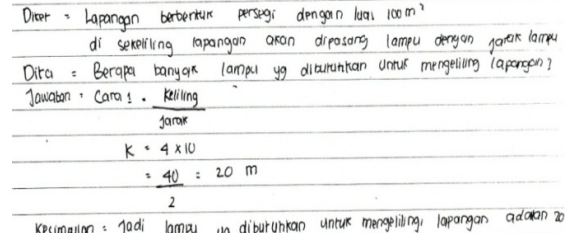 Diket = Lapangan berbentuk persegi dengan luas 100 m²
di sekeliling lapangan akan dipasang lampu dengan jarak lampu
Dita = Berapa banyak lampu yg dibutuhkan untuk mengeliling lapangan?
Jawaban : Cara 1 . Keliling
Jarak
K = 4 x 10
= 40 = 20 m
2
Kesimpulan = Jadi lampu yg dibutuhkan untuk mengelilingi lapangan adalah 20